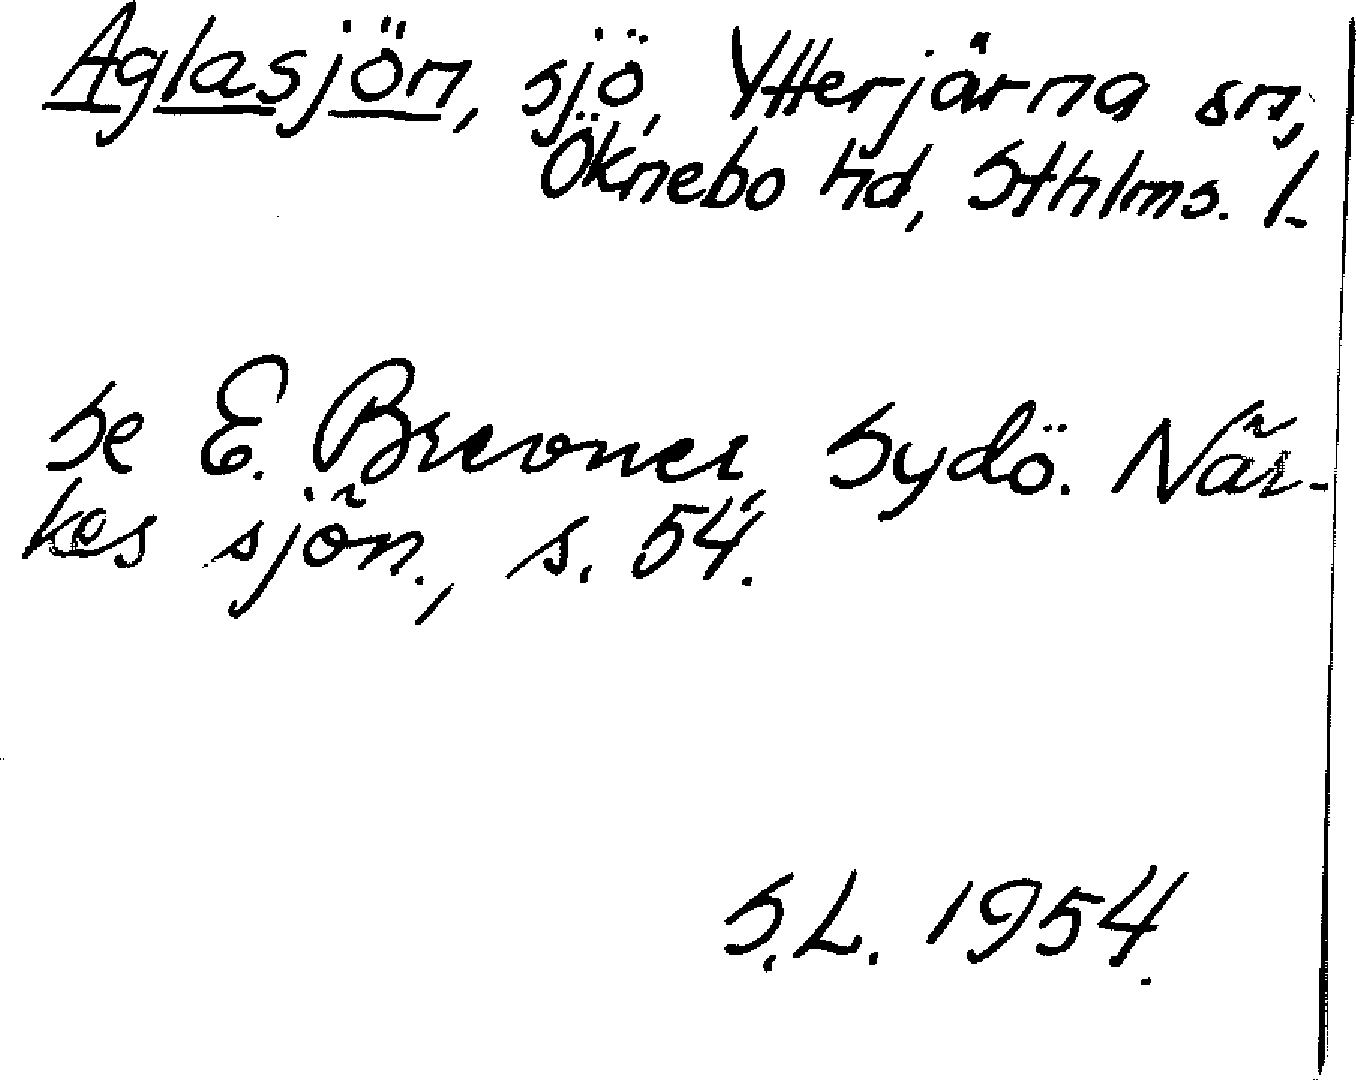 Aglasjön, sjö, Ytterjärna sn,
Öknebo hd, Sthlms. l.
Se E. Brevner Sydö. När-
kes sjön., s. 54.
S.L. 1954.